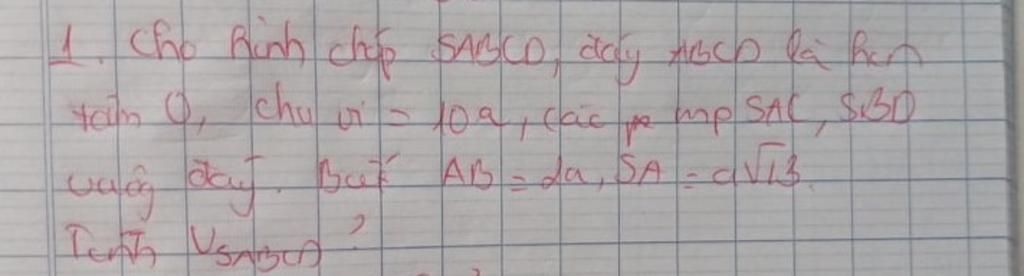 1. Cho hình chóp SABCD, đáy ABCD là hcn
tâm O, chu vi = 10a, các mp SAC, SBD
vuông đáy. Biết AB = 2a, SA = a√13.
Tính VSABCD ?